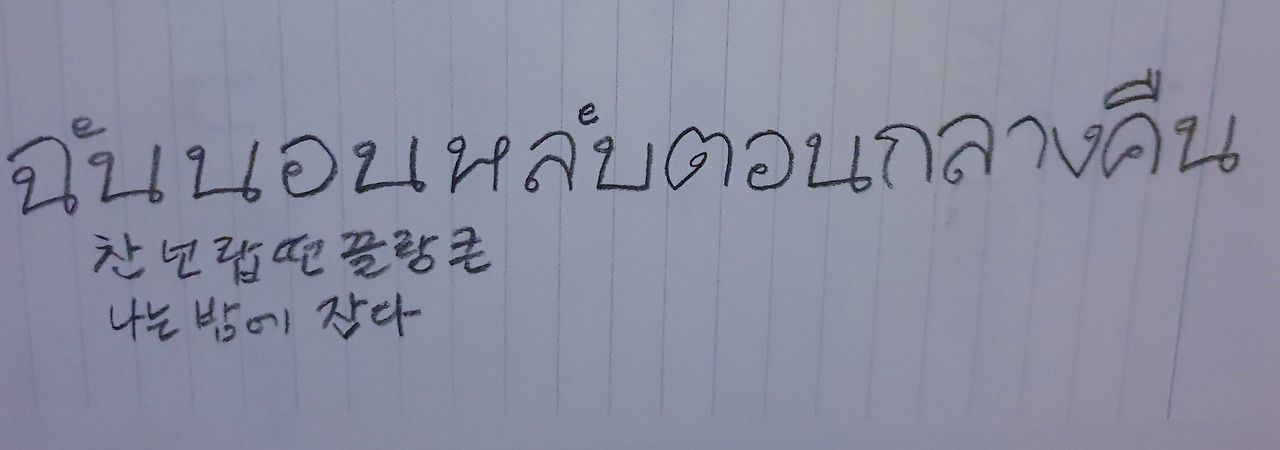 ฉันนอนหลับตอนกลางคืน
찬 넌 랍 떤 끌랑 큰
나는 밤에 잡다